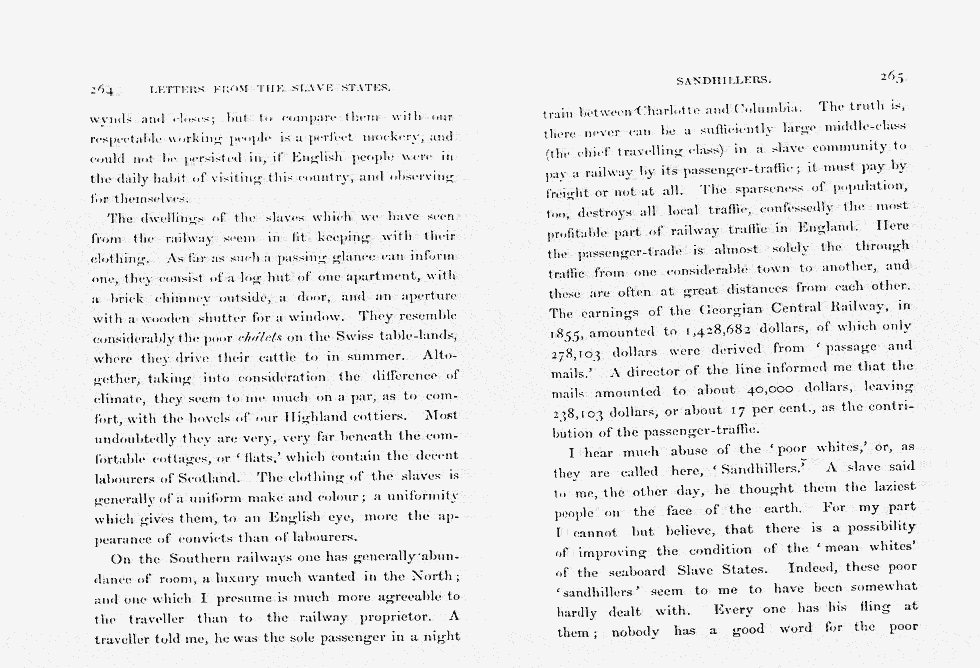 264 LETTERS FROM THE SLAVE STATES.
wynds and closes; but to compare them with our
respectable working people is a perfect mockery, and
could not be persisted in, if English people were in
the daily habit of visiting this country, and observing
for themselves.
The dwellings of the slaves which we have seen
from the railway seem in fit keeping with their
clothing. As far as such a passing glance can inform
one, they consist of a log hut of one apartment, with
a brick chimney outside, a door, and an aperture
with a wooden shutter for a window. They resemble
considerably the poor châlets on the Swiss table-lands,
where they drive their cattle to in summer. Alto-
gether, taking into consideration the difference of
climate, they seem to me much on a par, as to com-
fort, with the hovels of our Highland cottiers. Most
undoubtedly they are very, very far beneath the com-
fortable cottages, or ‘flats,’ which contain the decent
labourers of Scotland. The clothing of the slaves is
generally of a uniform make and colour; a uniformity
which gives them, to an English eye, more the ap-
pearance of convicts than of labourers.
On the Southern railways one has generally abun-
dance of room, a luxury much wanted in the North;
and one which I presume is much more agreeable to
the traveller than to the railway proprietor. A
traveller told me, he was the sole passenger in a night
SANDHILLERS. 265
train between Charlotte and Columbia. The truth is,
there never can be a sufficiently large middle-class
(the chief travelling class) in a slave community to
pay a railway by its passenger-traffic; it must pay by
freight or not at all. The sparseness of population,
too, destroys all local traffic, confessedly the most
profitable part of railway traffic in England. Here
the passenger-trade is almost solely the through
traffic from one considerable town to another, and
these are often at great distances from each other.
The earnings of the Georgian Central Railway, in
1855, amounted to 1,428,682 dollars, of which only
278,103 dollars were derived from ‘passage and
mails.’ A director of the line informed me that the
mails amounted to about 40,000 dollars, leaving
238,103 dollars, or about 17 per cent., as the contri-
bution of the passenger-traffic.
I hear much abuse of the ‘poor whites,’ or, as
they are called here, ‘Sandhillers.’ A slave said
to me, the other day, he thought them the laziest
people on the face of the earth. For my part
I cannot but believe, that there is a possibility
of improving the condition of the ‘mean whites’
of the seaboard Slave States. Indeed, these poor
‘sandhillers’ seem to me to have been somewhat
hardly dealt with. Every one has his fling at
them; nobody has a good word for the poor